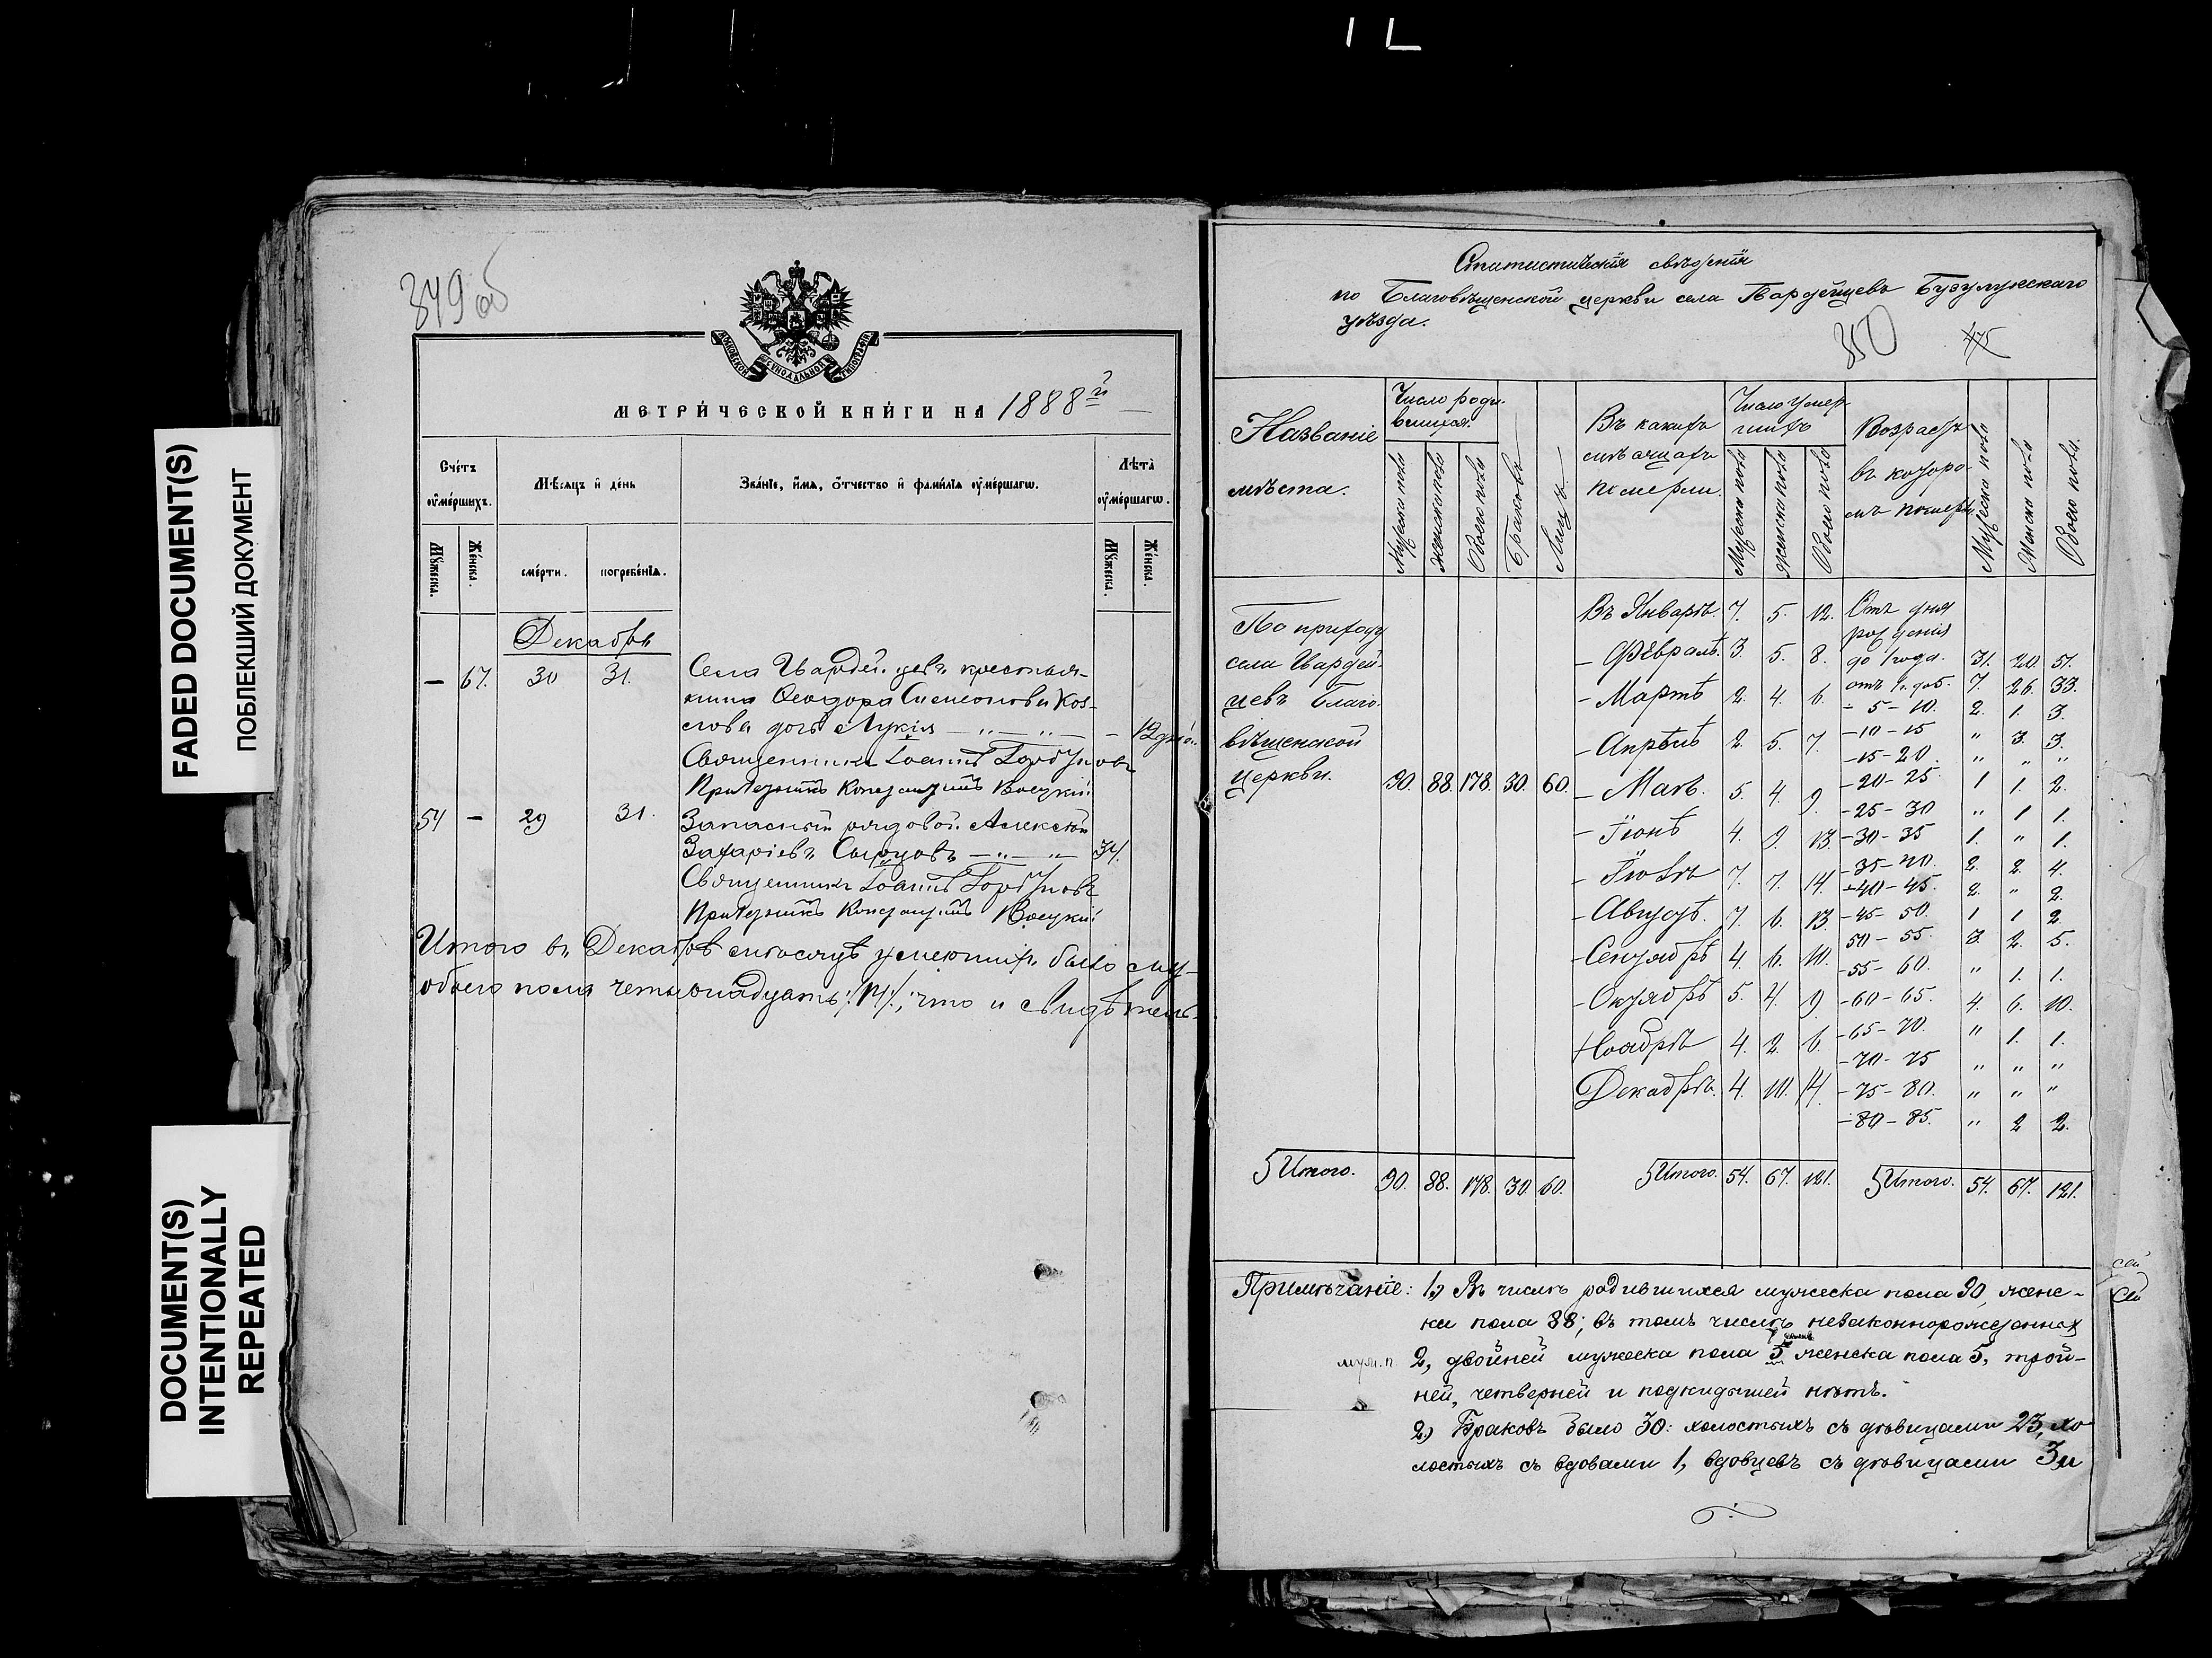 FADED DOCUMENT(S)
ПОБЛЕКШИЙ ДОКУМЕНТ
DOCUMENT(S)
INTENTIONALLY
REPEATED
349 об
МОСКОВСКОЙ СУНОДАЛЬНОЙ ТИПОГРАФІИ
МЕТРИ́ЧЕСКОЙ КНИ́ГИ НА 1888й
Сче́тъ оумершихъ.
Мѣсяцъ и день
Зва́нїе, и́мя, о́тчество и фами́лїя оуме́ршагѡ.
Лѣта̀ оуме́ршагѡ.
Мꙋжеска.
Же́нска.
сме́рти.
погребе́нїя.
Мꙋжеска.
Же́нска.
Декабрь
— 67. 30 31. Села Гвардейцевъ крестья-
нина Ѳеодора Симеонова Коз-
лова дочь Лукія — 12 дн.
Священникъ Іоаннъ Горбуновъ
Причетникъ
54 — 29 31. Запасный рядовой Алексѣй
Захаріевъ Сырцовъ 34.
Священникъ Іоаннъ Горбуновъ
Причетникъ
Итого въ Декабрѣ мѣсяцѣ умершихъ было му-
обоего пола четырнадцать /14/, что и свидѣтель-
Статистическія свѣдѣнія
по Благовѣщенской церкви села Гвардейцевъ Бузулукскаго
уѣзда.
350 475
Названіе мѣста.
Число родившихся.
Мужеска пола
Женска пола
Обоего пола
Браковъ
Лицъ
Въ какихъ мѣсяцахъ померли.
Число умершихъ
Мужеска пола
Женска пола
Обоего пола
Возрастъ въ которомъ померли
Мужеска пола
Женска пола
Обоего пола.
По приходу
села Гвардей-
цевъ Благо-
вѣщенской
церкви. 90. 88. 178. 30. 60.
Въ Январѣ. 7. 5. 12.
— Февралѣ. 3 5. 8.
— Мартѣ 2. 4. 6.
— Апрѣлѣ 2. 5. 7.
— Маѣ. 5. 4. 9.
— Іюнѣ 4. 9. 13.
— Іюлѣ 7. 7. 14.
— Августѣ. 7. 6. 13.
— Сентябрѣ 4. 6. 10.
— Октябрѣ 5. 4. 9
— Ноябрѣ 4. 2. 6.
Декабрѣ. 4. 10. 14.
Отъ дня
рожденія
до 1 года. 31. 20. 51.
отъ 1 г. до 5. 7. 26. 33.
— 5 — 10. 2. 1. 3.
— 10 — 15 " 3. 3.
— 15 — 20. " " "
— 20 — 25. 1 1. 2.
— 25 — 30 " 1 1.
— 30 — 35 1. " 1.
— 35 — 40. 2. 2. 4.
— 40 — 45. 2. " 2.
— 45 — 50. 1 1 2.
50 — 55. 3. 2. 5.
— 55 — 60. " 1. 1.
— 60 — 65. 4. 6. 10.
— 65 — 70. " 1. 1.
— 70 — 75 " " "
— 75 — 80. " " "
— 80 — 85. " 2 2.
Итого. 90. 88. 178. 30 60.
Итого. 54. 67. 121.
Итого. 54. 67. 121.
Примѣчаніе: 1,) Въ числѣ родившихся мужеска пола 90, женс-
ка пола 88; въ томъ числѣ незаконнорожденныхъ
муж. п. 2, двойней мужеска пола 5 женска пола 5, трой-
ней, четверней и подкидышей нѣтъ.
2) Браковъ было 30: холостыхъ съ дѣвицами 23, хо
лостыхъ съ вдовами 1, вдовцевъ съ дѣвицами 3, и